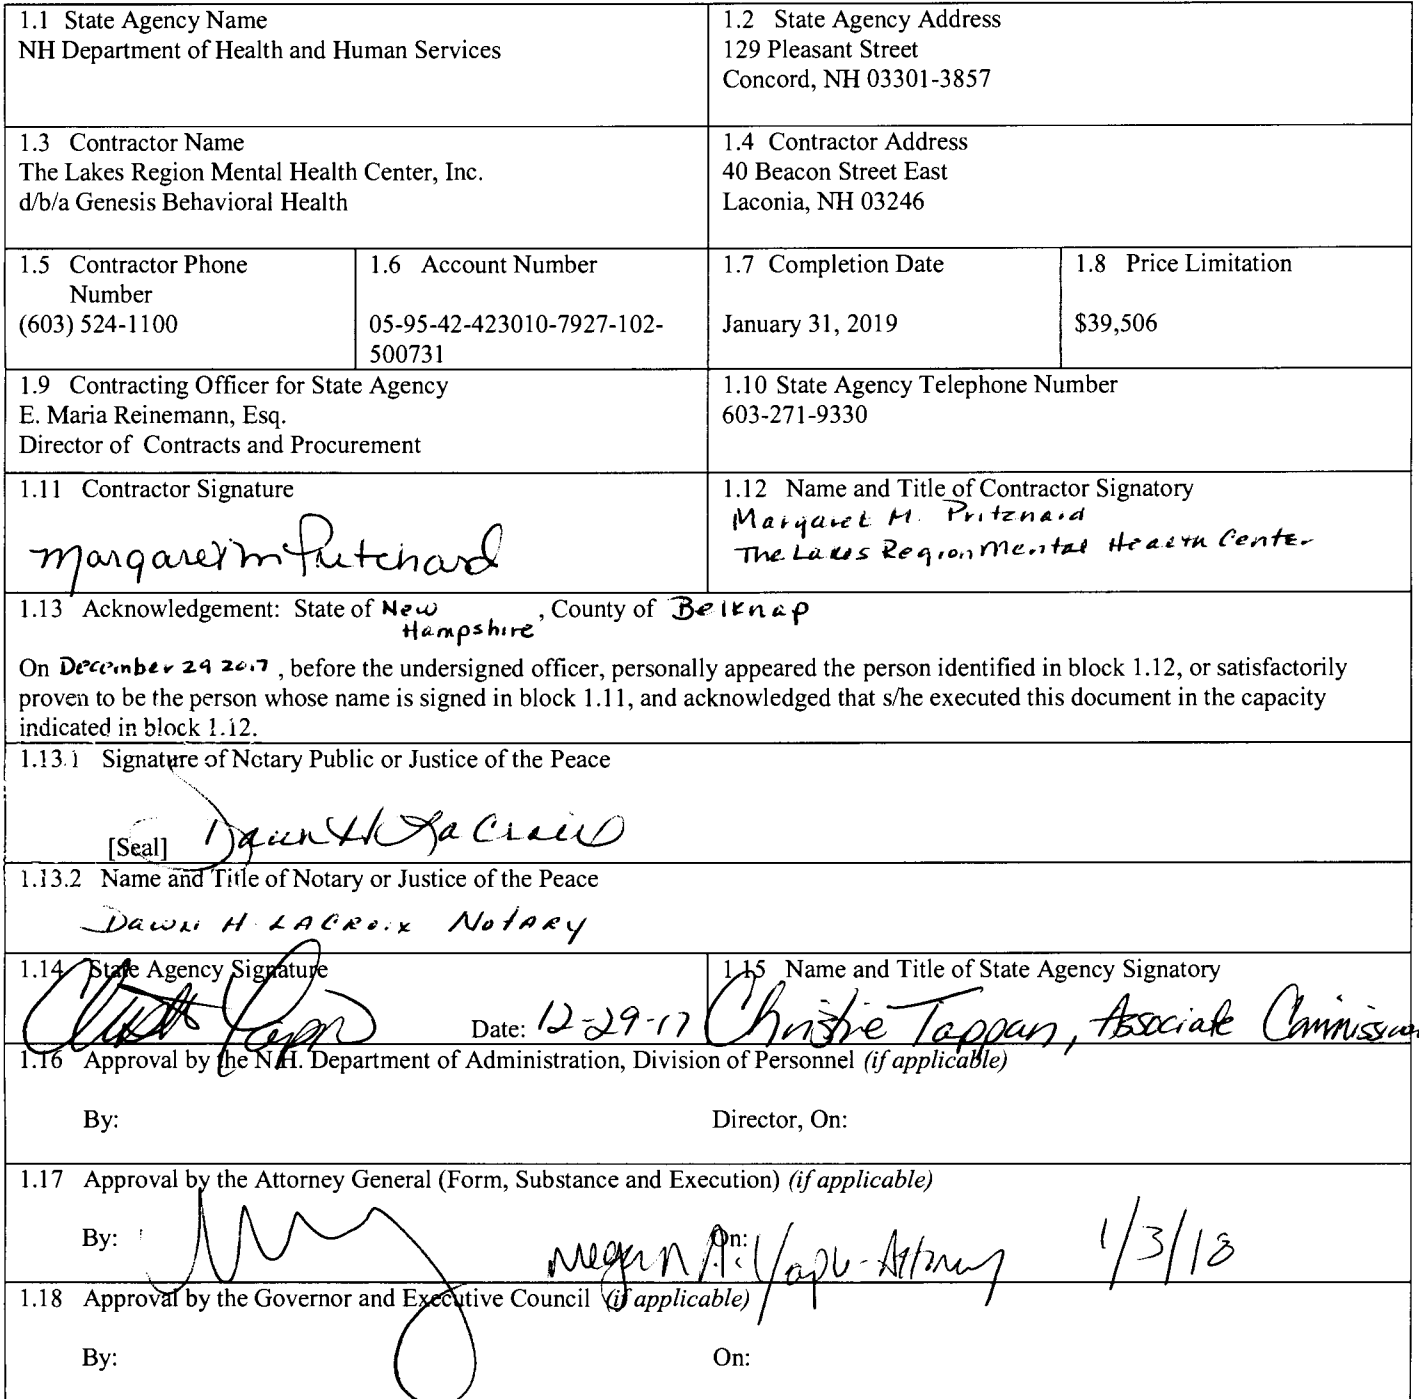 1.1 State Agency Name
NH Department of Health and Human Services
1.2 State Agency Address
129 Pleasant Street
Concord, NH 03301-3857
1.3 Contractor Name
The Lakes Region Mental Health Center, Inc.
d/b/a Genesis Behavioral Health
1.4 Contractor Address
40 Beacon Street East
Laconia, NH 03246
1.5 Contractor Phone
Number
(603) 524-1100
1.6 Account Number
05-95-42-423010-7927-102-
500731
1.7 Completion Date
January 31, 2019
1.8 Price Limitation
$39,506
1.9 Contracting Officer for State Agency
E. Maria Reinemann, Esq.
Director of Contracts and Procurement
1.10 State Agency Telephone Number
603-271-9330
1.11 Contractor Signature
Margaret M Pritchard
1.12 Name and Title of Contractor Signatory
Margaret M. Pritchard
The Lakes Region Mental Health Center
1.13 Acknowledgement: State of New Hampshire, County of Belknap
On December 29 2017, before the undersigned officer, personally appeared the person identified in block 1.12, or satisfactorily
proven to be the person whose name is signed in block 1.11, and acknowledged that s/he executed this document in the capacity
indicated in block 1.12.
1.13.1 Signature of Notary Public or Justice of the Peace
[Seal] Dawn H LaCroix
1.13.2 Name and Title of Notary or Justice of the Peace
Dawn H LACROIX Notary
1.14 State Agency Signature
Date: 12-29-17
1.15 Name and Title of State Agency Signatory
Christie Tappan, Associate Commission
1.16 Approval by the N.H. Department of Administration, Division of Personnel (if applicable)
By:
Director, On:
1.17 Approval by the Attorney General (Form, Substance and Execution) (if applicable)
By:
On:
Megan A. - Attorney 1/3/18
1.18 Approval by the Governor and Executive Council (if applicable)
By:
On: